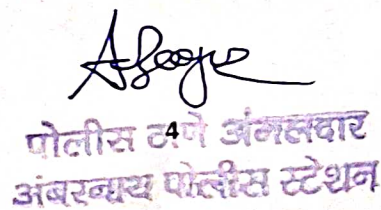 4
पोलीस ठाणे अंमलदार
अंबरनाथ पोलीस स्टेशन